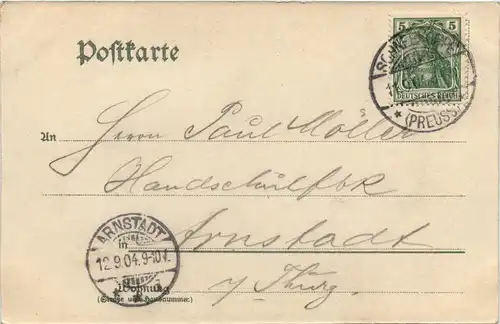 Postkarte
5 5
DEUTSCHES REICH
(PREUSS.)
An Herrn Paul Möller
Handschuhfbk
in Arnstadt
ARNSTADT
12.9.04.9-10V.
i/ Thürg.
Wohnung
(Straße und Hausnummer.)